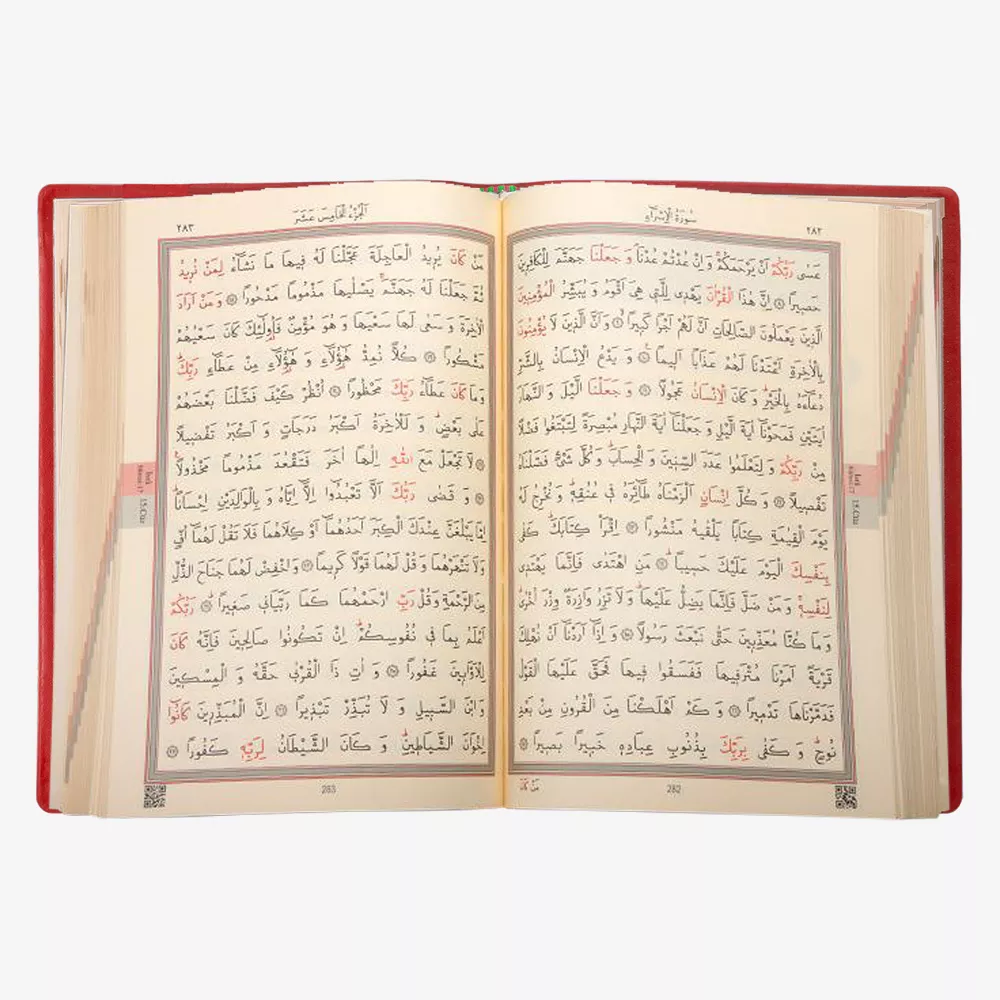 سُورَةُ الْاِسْرَاءِ
٢٨٢
عَسٰى رَبُّكُمْ اَنْ يَرْحَمَكُمْ وَ اِنْ عُدْتُمْ عُدْنَا وَ جَعَلْنَا جَهَنَّمَ لِلْكَافِرِينَ
حَصِيرًا ۝ اِنَّ هٰذَا الْقُرْاٰنَ يَهْدِى لِلَّتِى هِىَ اَقْوَمُ وَ يُبَشِّرُ الْمُؤْمِنِينَ
الَّذِينَ يَعْمَلُونَ الصَّالِحَاتِ اَنَّ لَهُمْ اَجْرًا كَبِيرًا ۝ وَ اَنَّ الَّذِينَ لَا يُؤْمِنُونَ
بِالْاٰخِرَةِ اَعْتَدْنَا لَهُمْ عَذَابًا اَلِيمًا ۝ وَ يَدْعُ الْاِنْسَانُ بِالشَّرِّ
دُعَاءَهُ بِالْخَيْرِ وَ كَانَ الْاِنْسَانُ عَجُولًا ۝ وَ جَعَلْنَا الَّيْلَ وَ النَّهَارَ
اٰيَتَيْنِ فَمَحَوْنَا اٰيَةَ الَّيْلِ وَ جَعَلْنَا اٰيَةَ النَّهَارِ مُبْصِرَةً لِتَبْتَغُوا فَضْلًا
مِنْ رَبِّكُمْ وَ لِتَعْلَمُوا عَدَدَ السِّنِينَ وَ الْحِسَابَ وَ كُلَّ شَىْءٍ فَصَّلْنَاهُ
تَفْصِيلًا ۝ وَ كُلَّ اِنْسَانٍ اَلْزَمْنَاهُ طَائِرَهُ فِى عُنُقِهِ وَ نُخْرِجُ لَهُ
يَوْمَ الْقِيٰمَةِ كِتَابًا يَلْقٰيهُ مَنْشُورًا ۝ اِقْرَاْ كِتَابَكَ كَفٰى
بِنَفْسِكَ الْيَوْمَ عَلَيْكَ حَسِيبًا ۝ مَنِ اهْتَدٰى فَاِنَّمَا يَهْتَدِى
لِنَفْسِهِ وَ مَنْ ضَلَّ فَاِنَّمَا يَضِلُّ عَلَيْهَا وَ لَا تَزِرُ وَازِرَةٌ وِزْرَ اُخْرٰى
وَ مَا كُنَّا مُعَذِّبِينَ حَتّٰى نَبْعَثَ رَسُولًا ۝ وَ اِذَا اَرَدْنَا اَنْ نُهْلِكَ
قَرْيَةً اَمَرْنَا مُتْرَفِيهَا فَفَسَقُوا فِيهَا فَحَقَّ عَلَيْهَا الْقَوْلُ
فَدَمَّرْنَاهَا تَدْمِيرًا ۝ وَ كَمْ اَهْلَكْنَا مِنَ الْقُرُونِ مِنْ بَعْدِ
نُوحٍ وَ كَفٰى بِرَبِّكَ بِذُنُوبِ عِبَادِهِ خَبِيرًا بَصِيرًا ۝
مَنْ كَانَ
282
اَلْجُزْءُ الْخَامِسَ عَشَرَ
٢٨٣
مَنْ كَانَ يُرِيدُ الْعَاجِلَةَ عَجَّلْنَا لَهُ فِيهَا مَا نَشَاءُ لِمَنْ نُرِيدُ
ثُمَّ جَعَلْنَا لَهُ جَهَنَّمَ يَصْلٰيهَا مَذْمُومًا مَدْحُورًا ۝ وَ مَنْ اَرَادَ
الْاٰخِرَةَ وَ سَعٰى لَهَا سَعْيَهَا وَ هُوَ مُؤْمِنٌ فَاُولٰئِكَ كَانَ سَعْيُهُمْ
مَشْكُورًا ۝ كُلًّا نُمِدُّ هٰؤُلَاءِ وَ هٰؤُلَاءِ مِنْ عَطَاءِ رَبِّكَ
وَ مَا كَانَ عَطَاءُ رَبِّكَ مَحْظُورًا ۝ اُنْظُرْ كَيْفَ فَضَّلْنَا بَعْضَهُمْ
عَلٰى بَعْضٍ وَ لَلْاٰخِرَةُ اَكْبَرُ دَرَجَاتٍ وَ اَكْبَرُ تَفْضِيلًا
۝ لَا تَجْعَلْ مَعَ اللّٰهِ اِلٰهًا اٰخَرَ فَتَقْعُدَ مَذْمُومًا مَخْذُولًا
۝ وَ قَضٰى رَبُّكَ اَلَّا تَعْبُدُوا اِلَّا اِيَّاهُ وَ بِالْوَالِدَيْنِ اِحْسَانًا
اِمَّا يَبْلُغَنَّ عِنْدَكَ الْكِبَرَ اَحَدُهُمَا اَوْ كِلَاهُمَا فَلَا تَقُلْ لَهُمَا اُفٍّ
وَ لَا تَنْهَرْهُمَا وَ قُلْ لَهُمَا قَوْلًا كَرِيمًا ۝ وَ اخْفِضْ لَهُمَا جَنَاحَ الذُّلِّ
مِنَ الرَّحْمَةِ وَ قُلْ رَبِّ ارْحَمْهُمَا كَمَا رَبَّيَانِى صَغِيرًا ۝ رَبُّكُمْ
اَعْلَمُ بِمَا فِى نُفُوسِكُمْ اِنْ تَكُونُوا صَالِحِينَ فَاِنَّهُ كَانَ
لِلْاَوَّابِينَ غَفُورًا ۝ وَ اٰتِ ذَا الْقُرْبٰى حَقَّهُ وَ الْمِسْكِينَ
وَ ابْنَ السَّبِيلِ وَ لَا تُبَذِّرْ تَبْذِيرًا ۝ اِنَّ الْمُبَذِّرِينَ كَانُوا
اِخْوَانَ الشَّيَاطِينِ وَ كَانَ الشَّيْطَانُ لِرَبِّهِ كَفُورًا ۝
283
15.Cüz